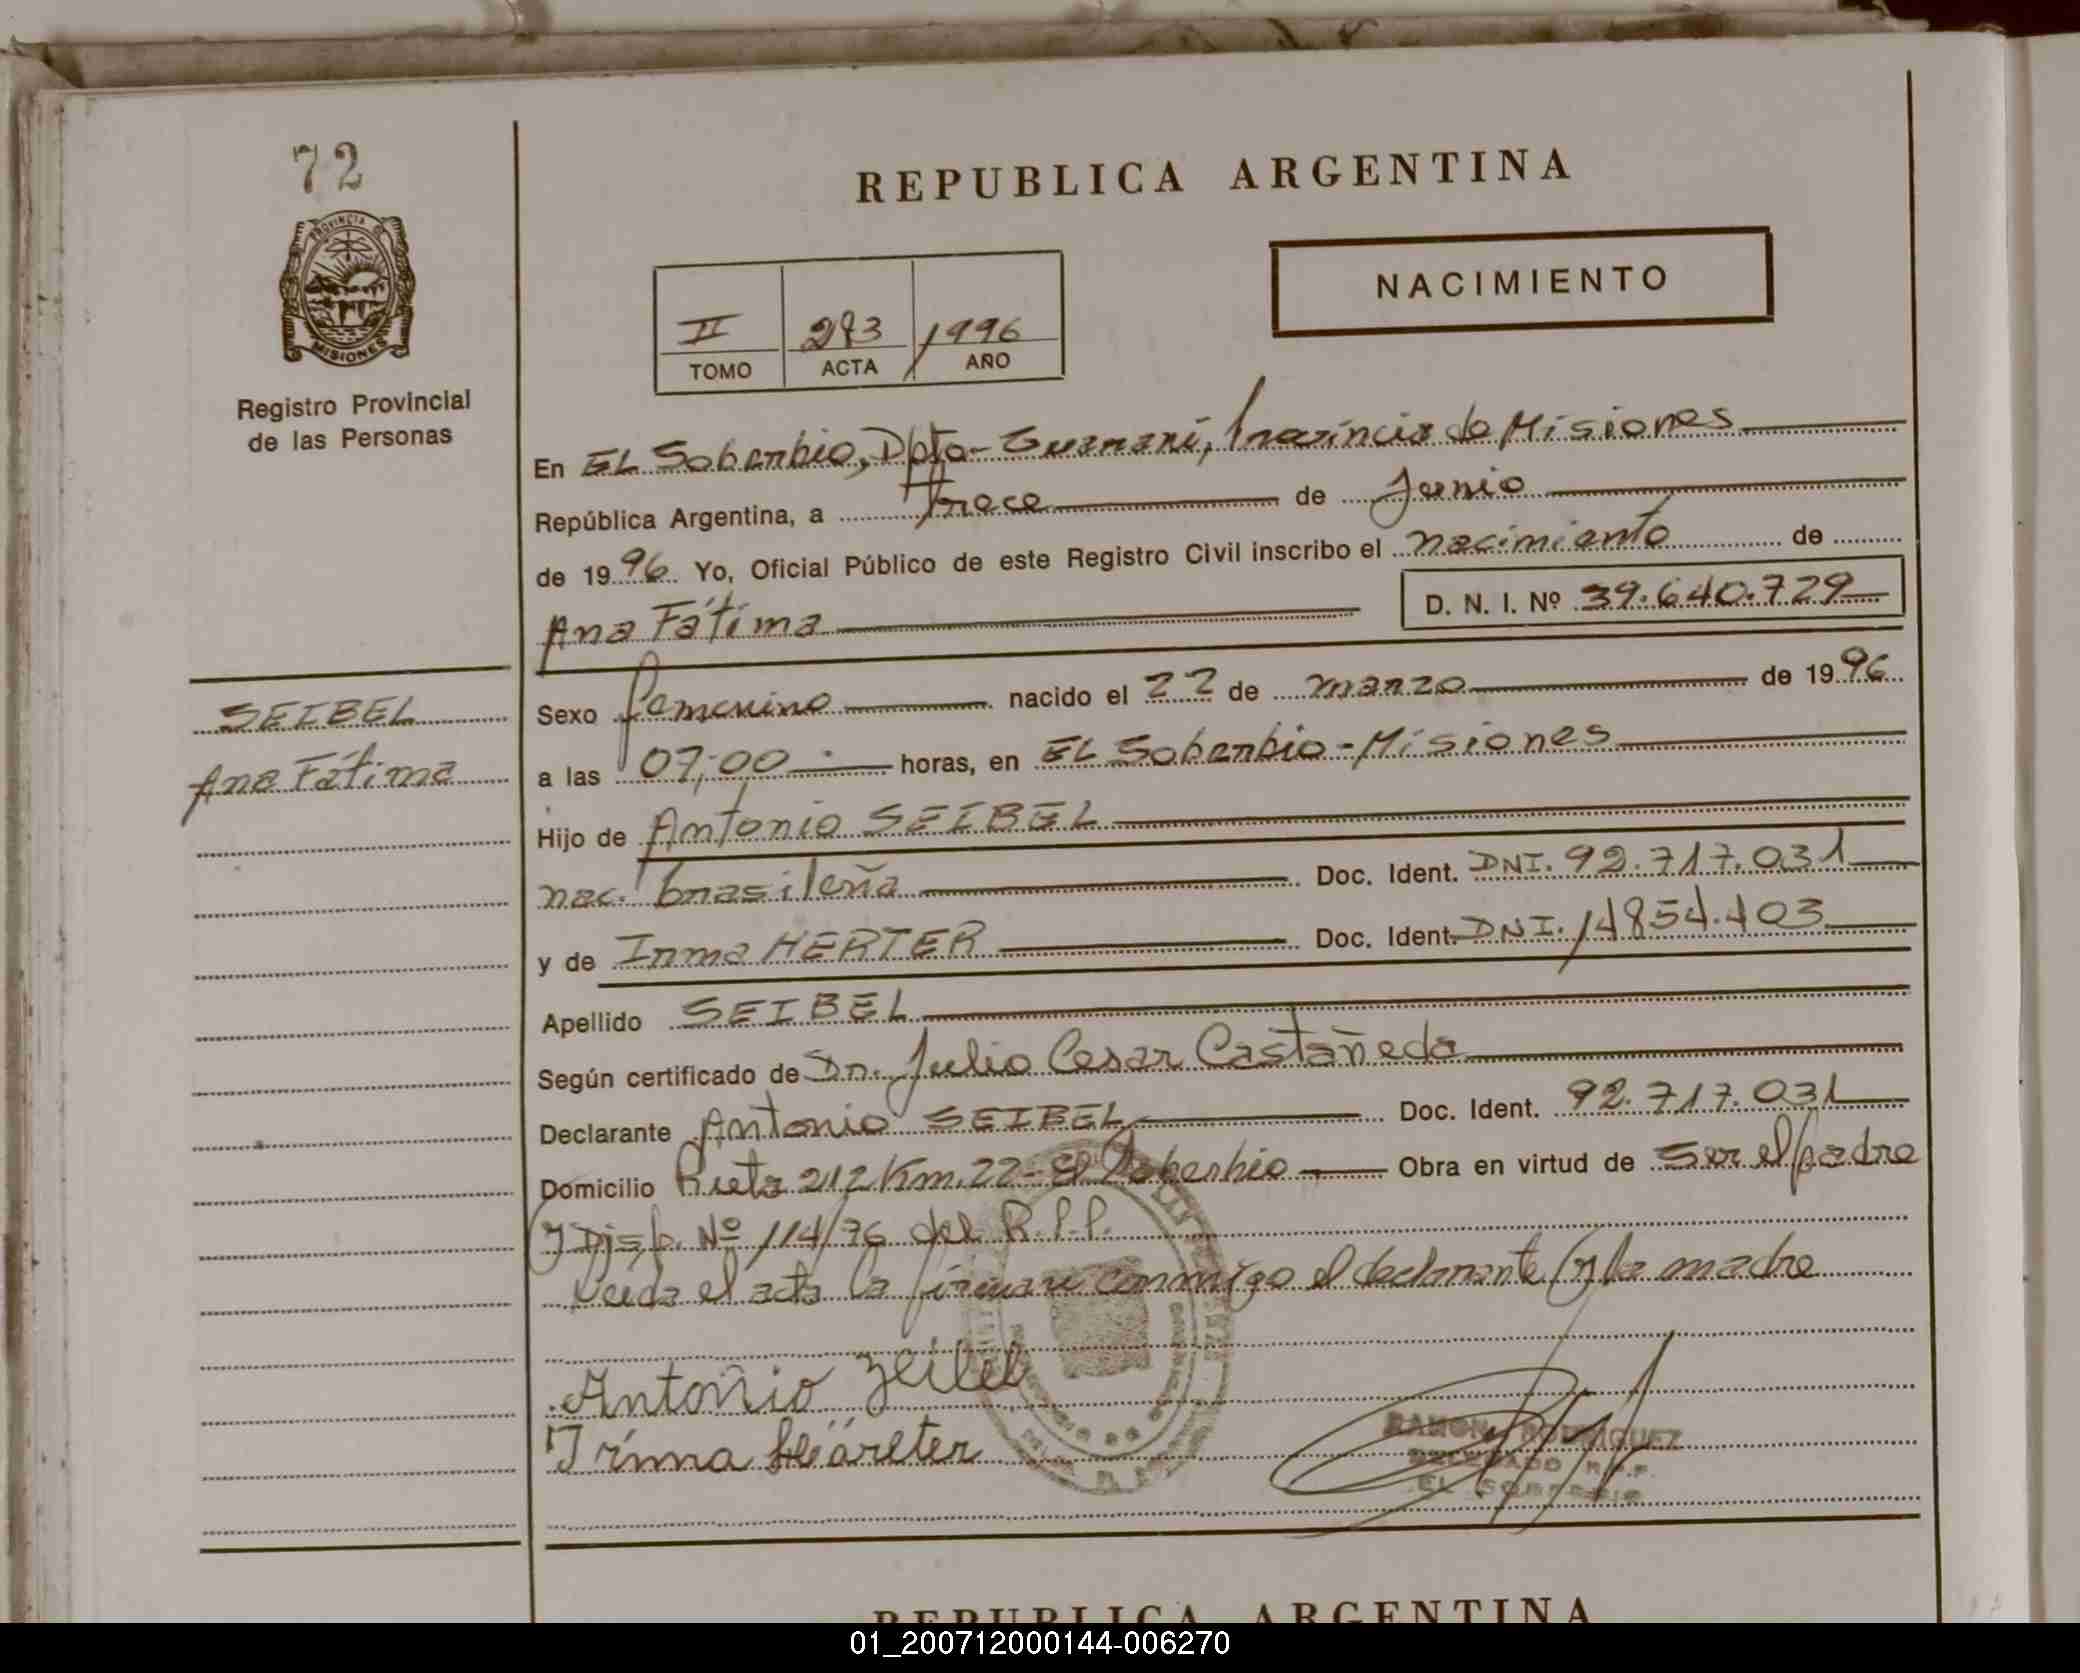 72
PROVINCIA DE
MISIONES
Registro Provincial
de las Personas
SEIBEL
Ana Fátima
REPUBLICA ARGENTINA
NACIMIENTO
II 293 1996
TOMO ACTA AÑO
En EL Soberbio, Dpto- Guaraní, Provincia de Misiones
República Argentina, a trece de Junio
de 1996 Yo, Oficial Público de este Registro Civil inscribo el nacimiento de
Ana Fátima D. N. I. Nº 39.640.729
Sexo femenino nacido el 22 de marzo de 1996
a las 07:00 horas, en EL Soberbio - Misiones
Hijo de Antonio SEIBEL
nac. brasileña Doc. Ident. DNI. 92.717.031
y de Irma HERTER Doc. Ident. DNI. 14854.403
Apellido SEIBEL
Según certificado de Dr. Julio Cesar Castañeda
Declarante Antonio SEIBEL Doc. Ident. 92.717.031
Domicilio Ruta 212 Km. 22 - El Soberbio Obra en virtud de Ser el padre
y Disp. Nº 114/76 del R.P.P.
Leida el acta la firman conmigo el declarante y la madre
Antonio Zeibel
Irma
RAMON RODRIGUEZ
DELEGADO R.P.P.
EL SOBERBIO
REPUBLICA ARGENTINA
01_200712000144-006270